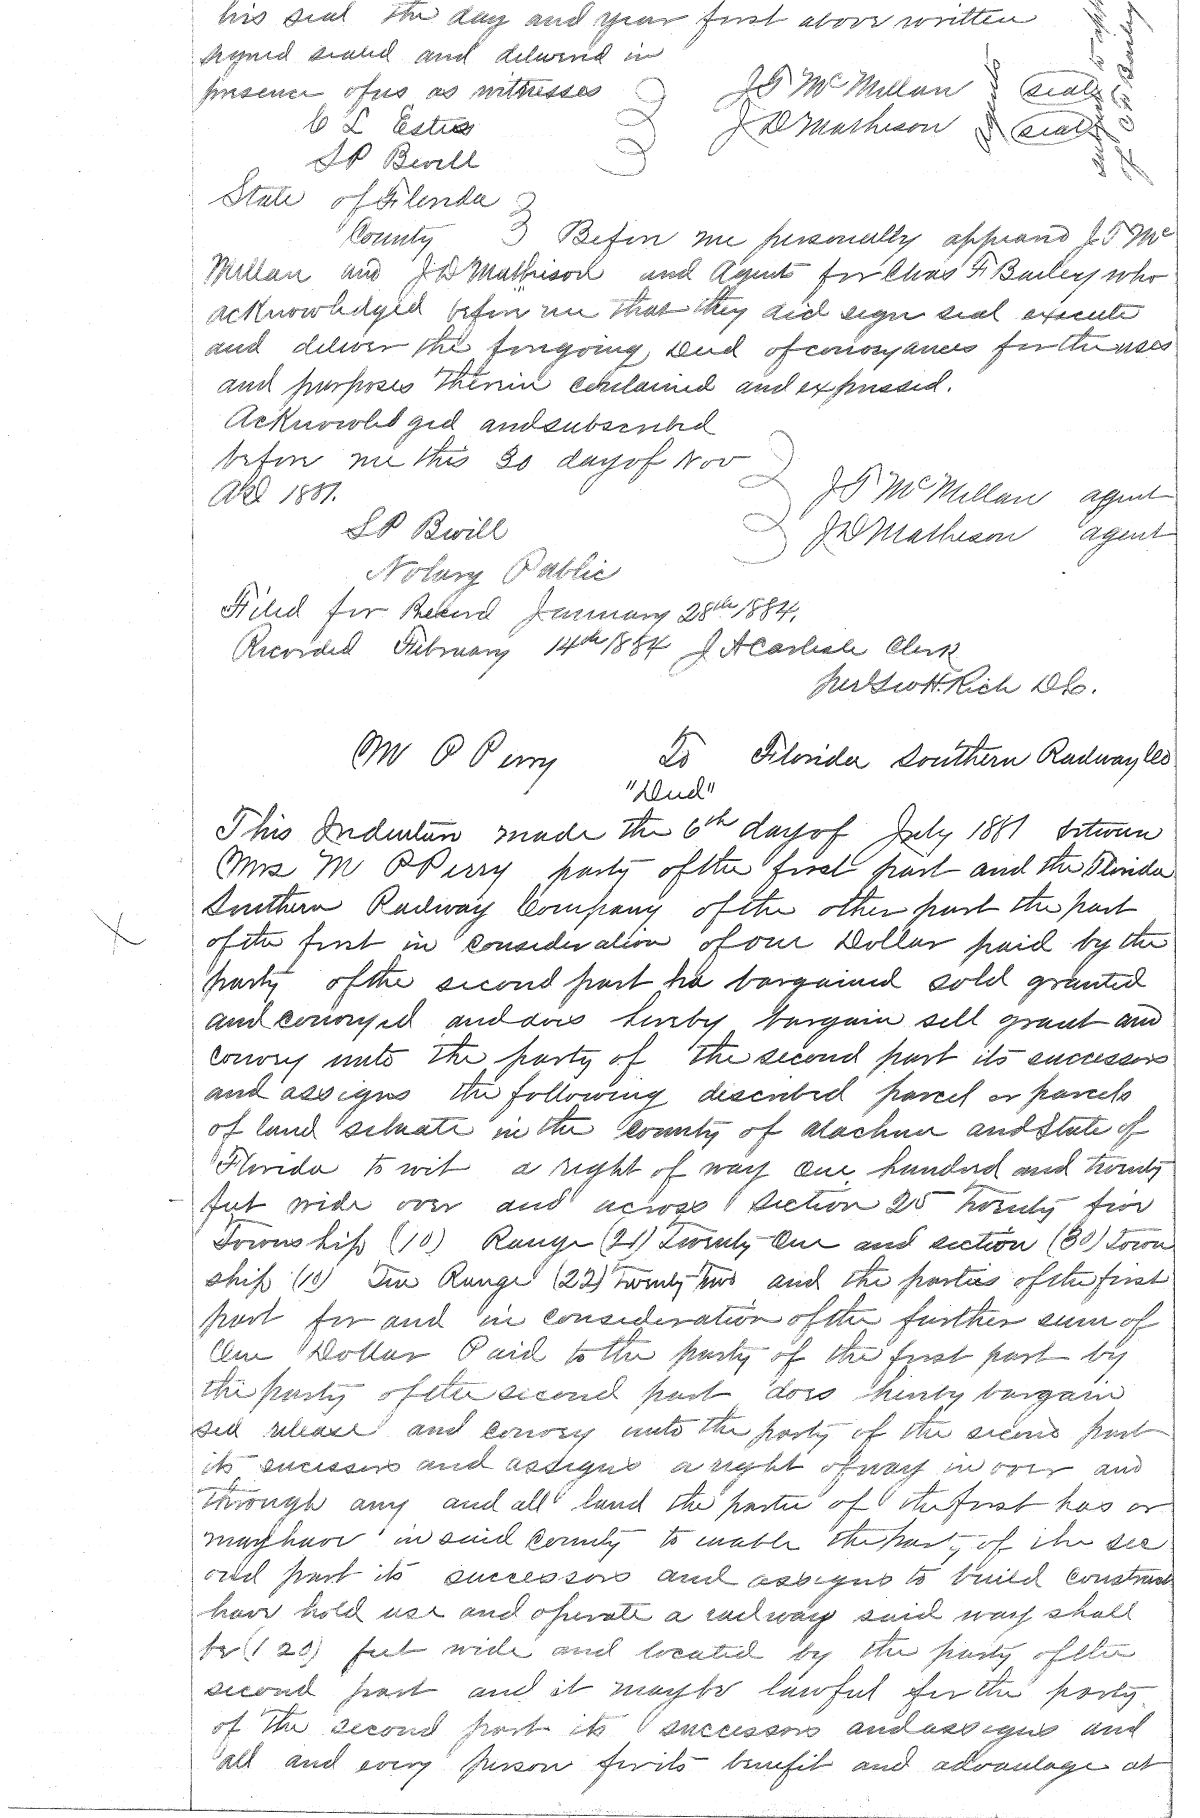 his seal the day and year first above written
signed sealed and delivered in
presence of us as witnesses J T McMillan seal
C L Estes J D Matheson seal
Agents
subject to app
of C F Bailey
S P Bevill
State of Florida
County Before me personally appeard J. T. Mc
Millan and J D Matheson and Agents for Chas F Bailey who
acknowledged before me that they did sign seal execute
and deliver the foregoing Deed of conveyances for the uses
and purposes therein contained and expressed.
Acknowledged and subscribed
before me this 30 day of Nov
AD 1881. J T McMillan agent
S P Bevill J D Matheson agent
Notary Public
Filed for Record January 28th 1884.
Recorded February 14th 1884 J A Carlisle Clerk
per Geo H. Rich D.C.
M P Perry To Florida Southern Railway Co
"Deed"
This Indenture made the 6th day of July 1881 between
Mrs M P Perry party of the first part and the Florida
Southern Railway Company of the other part the part
of the first in consideration of one Dollar paid by the
party of the second part ha bargained sold granted
and conveyed and does hereby bargain sell grant and
convey unto the party of the second part its successors
and assigns the following described parcel or parcels
of land situate in the County of Alachua and State of
Florida to wit a right of way One hundred and twenty
feet wide over and across Section 25 Twenty five
Township (10) Range (21) Twenty One and section (30) Town
ship (10) Ten Range (22) Twenty Two and the parties of the first
part for and in consideration of the further sum of
One Dollar Paid to the party of the first part by
the party of the second part does hereby bargain
sell release and convey unto the party of the second part
its sucessors and assigns a right of way in over and
through any and all land the partie of the first has or
may have in said County to enable the party of the sec
ond part its successors and assigns to build construct
have hold use and operate a railway said way shall
be (120) feet wide and located by the party of the
second part and it may be lawful for the party
of the second part its successors and assigns and
all and every person for its benefit and advantage at